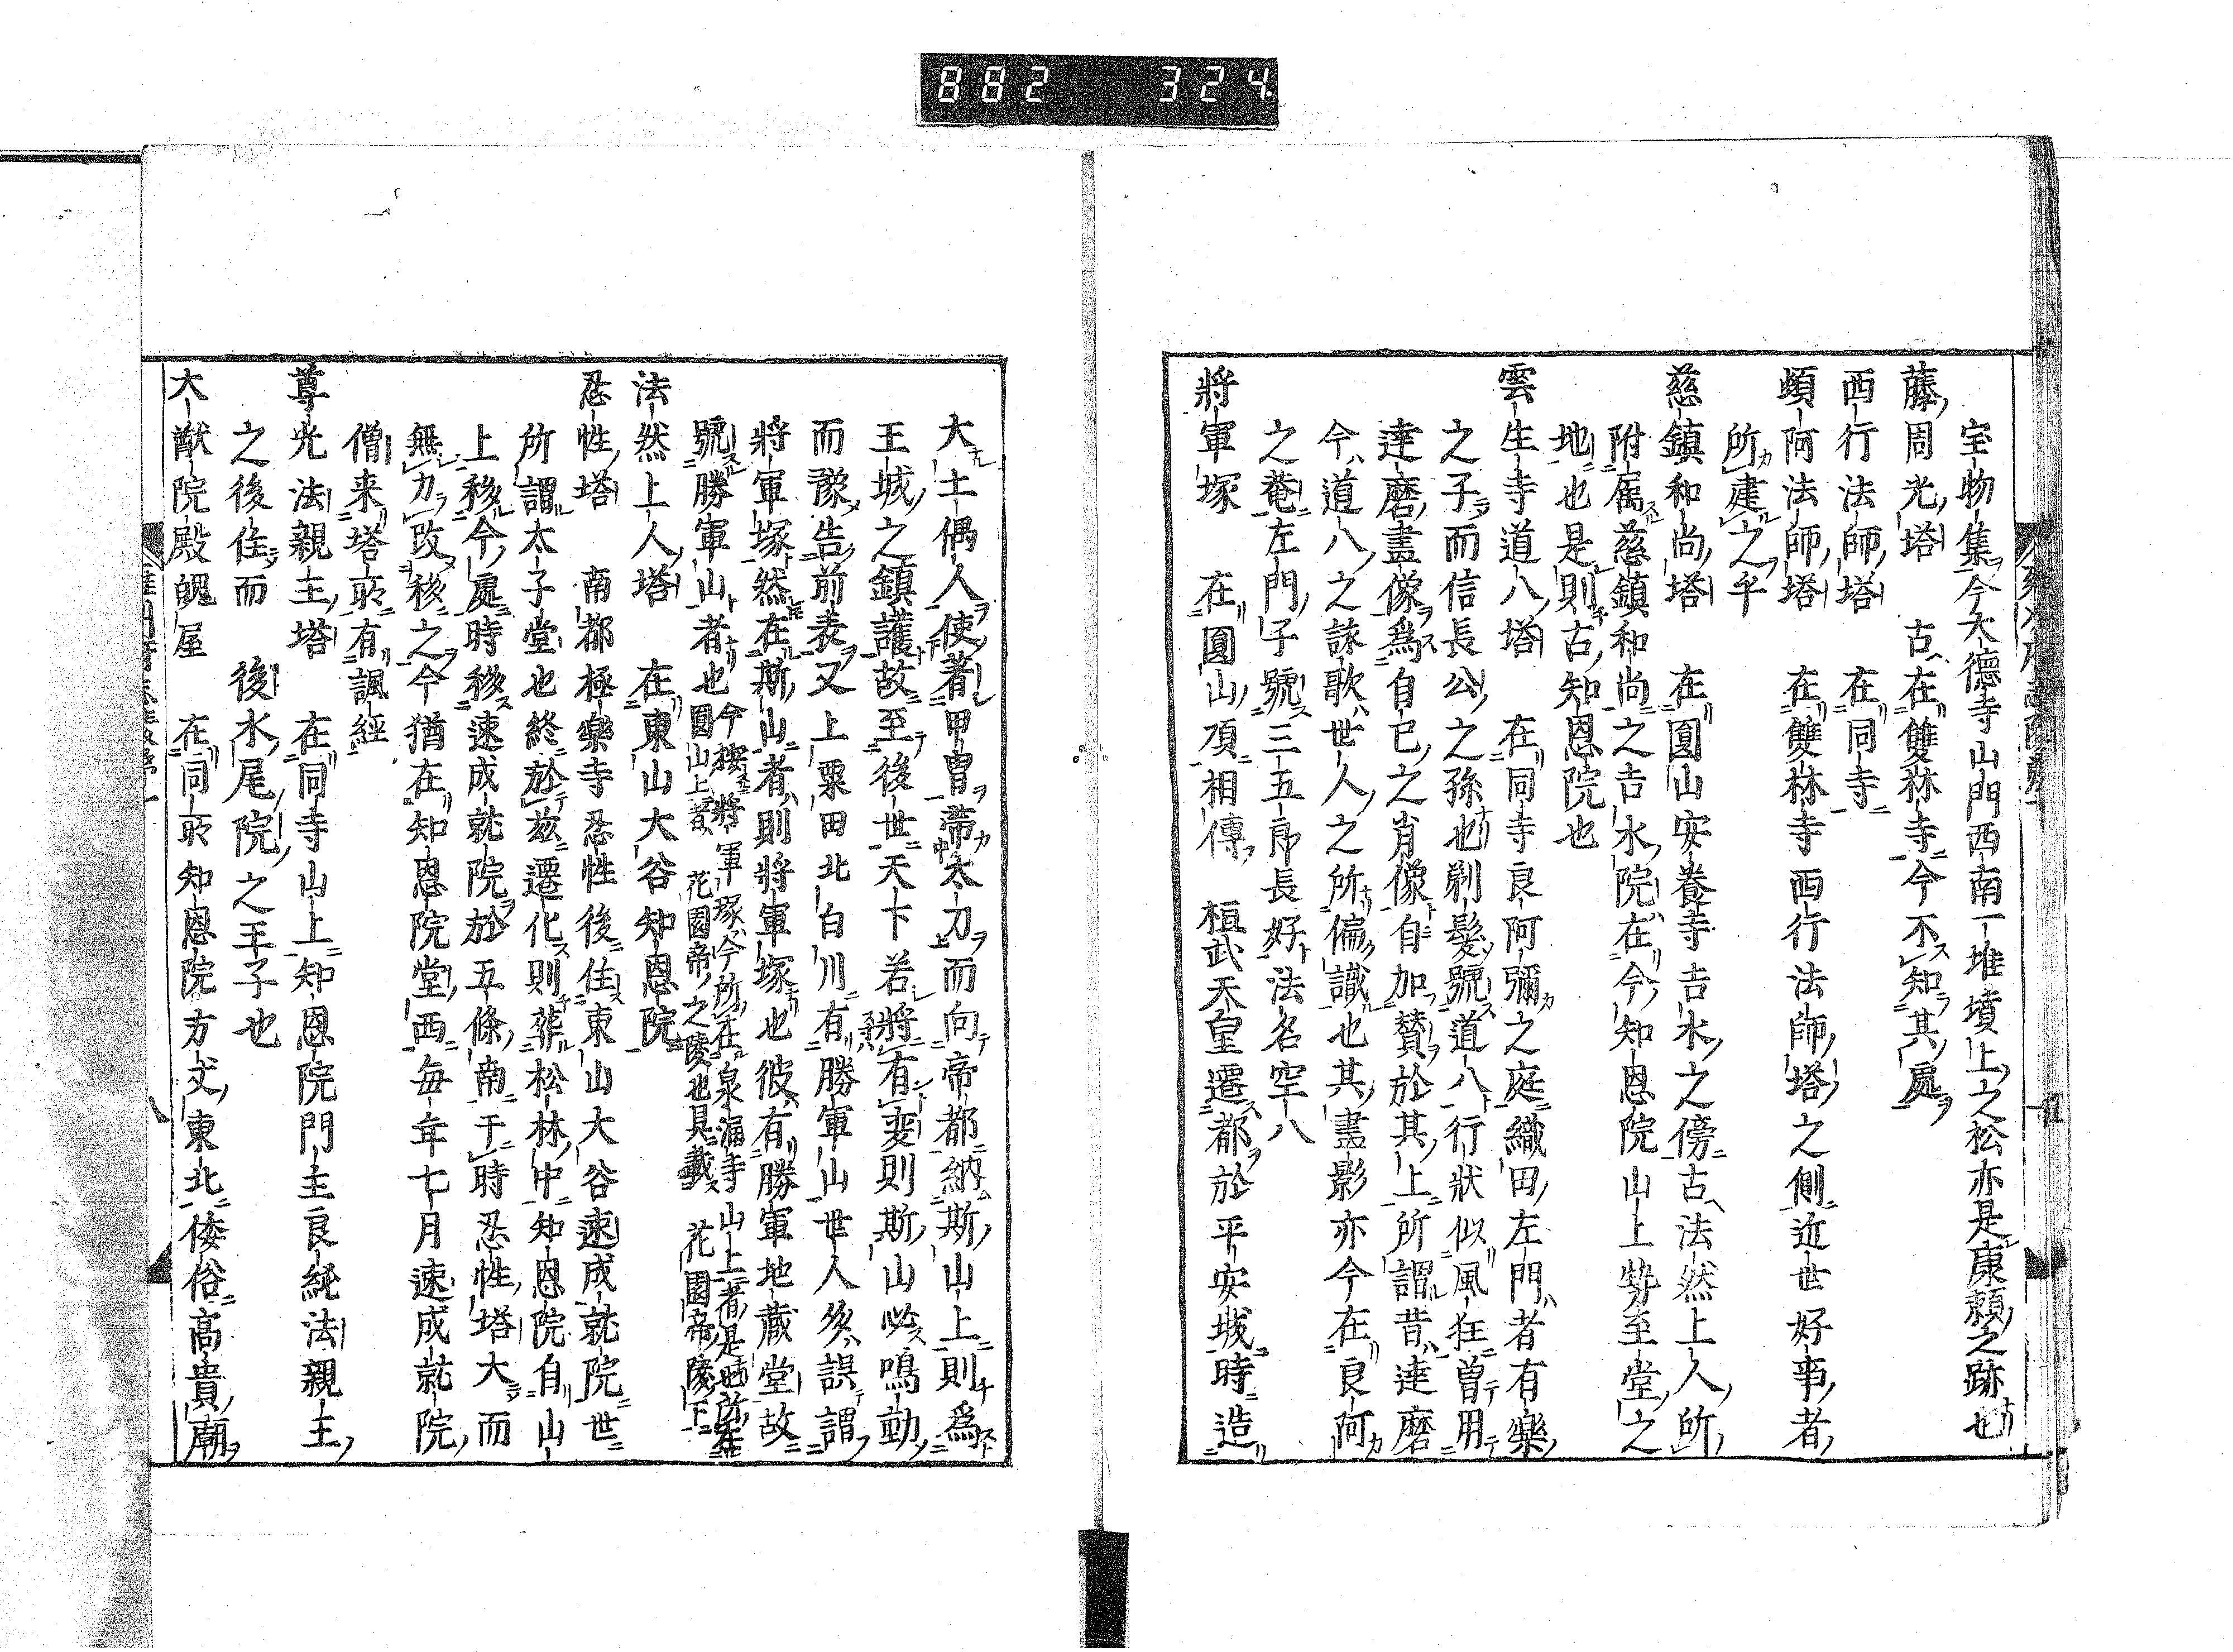 882 324
宝物集今大德寺山門西南一堆墳上之松亦是康頼之跡也
藤周光塔 古在雙林寺今不知其處
西行法師塔 在同寺
頓阿法師塔 在雙林寺西行法師塔之側近世好事者
所建之乎
慈鎮和尚塔 在圓山安養寺吉水之傍古法然上人所
附属慈鎮和尚之吉水院在今知恩院山上勢至堂之
地也是則古知恩院也
雲生寺道八塔 在同寺良阿彌之庭織田左門者有樂
之子而信長公之孫也剃髮號道八行狀似風狂曽用
達磨畫像爲自己之肖像自加賛於其上所謂昔達磨
今道八之詠歌世人之所偏識也其畫影亦今在良阿
之菴左門子號三五郎長好法名空八
將軍塚 在圓山頂相傳 桓武天皇遷都於平安城時造
大土偶人使著甲冑帶太刀而向帝都納斯山上則爲
王城之鎮護故至後世天下若將有変則斯山必鳴動
而豫告前表又上粟田北白川有勝軍山世人多誤謂
將軍塚然在斯山者則將軍塚也彼有勝軍地藏堂故
號勝軍山者也今按將軍塚今所在泉涌寺山上者是也所在
圓山上者 花園帝之陵也具載 花園帝陵下
法然上人塔 在東山大谷知恩院
忍性塔 南都極樂寺忍性後住東山大谷速成就院世
所謂太子堂也終於茲遷化則葬松林中知恩院自山
上移今處時移速成就院於五條南于時忍性塔大而
無力改移之今猶在知恩院堂西毎年七月速成就院
僧来塔所有諷經
尊光法親王塔 在同寺山上知恩院門主良純法親王
之後住而 後水尾院之王子也
大猷院殿魄屋 在同所知恩院方丈東北倭俗高貴廟
八